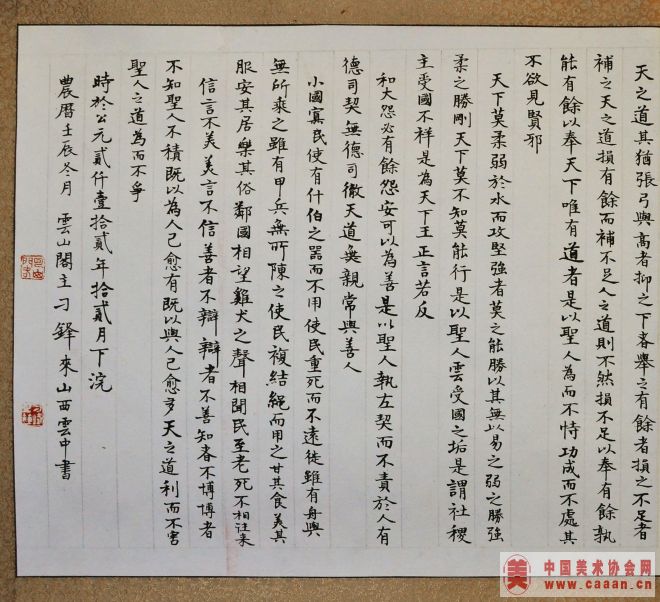 天之道其猶張弓與高者抑之下者舉之有餘者損之不足者
補之天之道損有餘而補不足人之道則不然損不足以奉有餘孰
能有餘以奉天下唯有道者是以聖人為而不恃功成而不處其
不欲見賢邪
天下莫柔弱於水而攻堅強者莫之能勝以其無以易之弱之勝強
柔之勝剛天下莫不知莫能行是以聖人雲受國之垢是謂社稷
主受國不祥是為天下王正言若反
和大怨必有餘怨安可以為善是以聖人執左契而不責於人有
德司契無德司徹天道無親常與善人
小國寡民使有什伯之器而不用使民重死而不遠徙雖有舟輿
無所乘之雖有甲兵無所陳之使民複結繩而用之甘其食美其
服安其居樂其俗鄰國相望雞犬之聲相聞民至老死不相往來
信言不美美言不信善者不辯辯者不善知者不博博者
不知聖人不積既以為人己愈有既以與人己愈多天之道利而不害
聖人之道為而不爭
時於公元貳仟壹拾貳年拾貳月下浣
農曆壬辰冬月 雲山閣主刁鐸來山西雲中書
美 中国美术协会网
www.caaan.cn